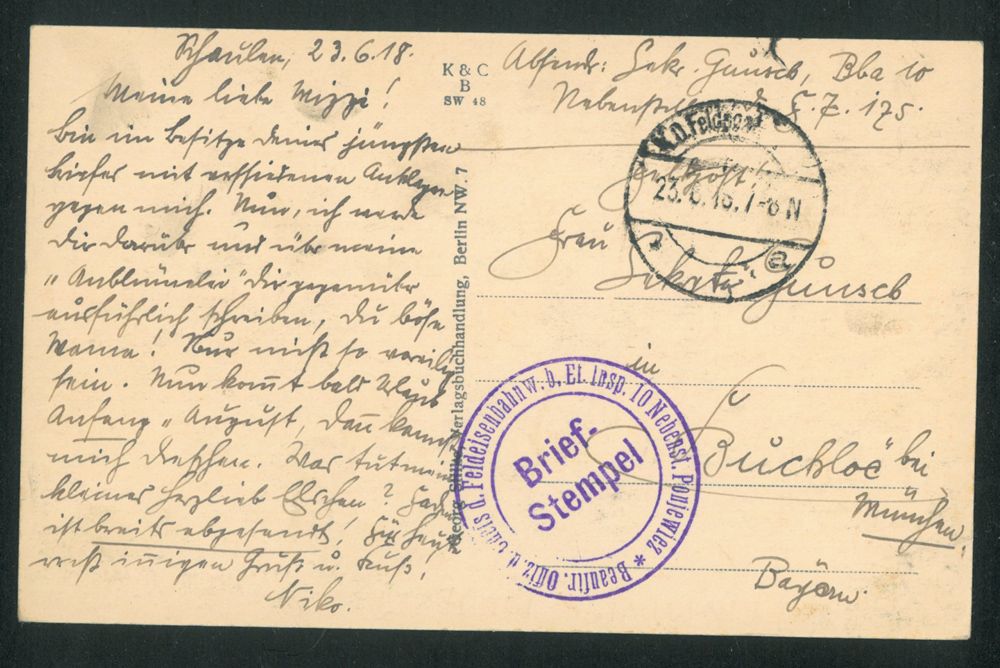 Schaulen, 23.6.18.
Meine liebe Mizzi!
Bin im Besitze deines jüngsten
Briefes mit verschiedenen Anklagen
gegen mich. Nun, ich werde
dir darüber und über meine
„Anbkümelei" dir gegenüber
ausführlich schreiben, du böse
Mama! Nur nicht so voreilig
sein. Nun kommt bald Urlaub
Anfang August, dann kannst
mich dreschen. Was tut mein
kleines herzlieb Elschen?
ist breits abgesandt! Für heute
innigen Gruß u. Kuß,
Niko.
K & C
B
SW 48
Verlagsbuchhandlung, Berlin NW. 7
Absendr: Sekr. Gunsch, Bba 10
Nebenstelle F. Z. 175.
K.D. Feldpost
23.6.18. 7-8 N
a
Frau
Sekretär Gunsch
in
Buchloe bei
München,
Bayern.
Beauftr. Offiz. d. Chefs d. Feldeisenbahnw. b. Et. Insp. 10 Nebenst. Ponjewiez *
Brief-
Stempel